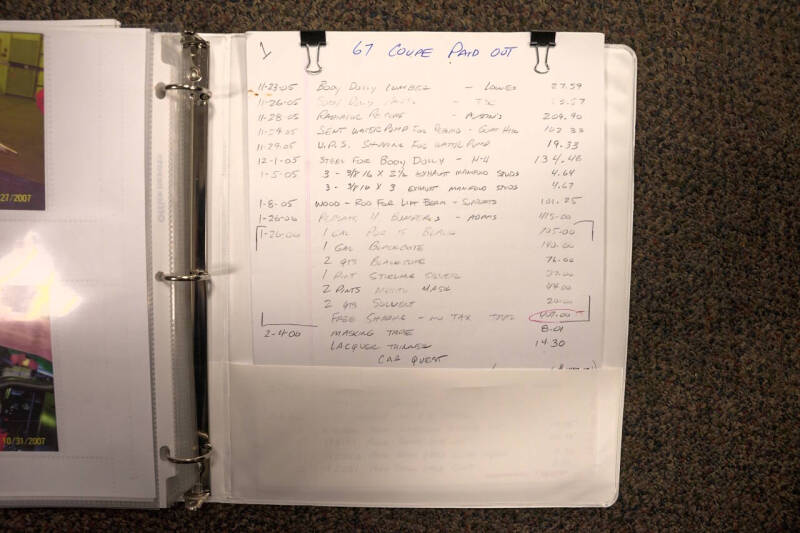 1
67 COUPE PAID OUT
11-23-05 BODY DOLLY LUMBER - LOWES 27.59
11-26-05 BODY DOLLY
11-28-05 RADIATOR 209.90
11-29-05 SENT WATER PUMP FOR REBUILD 102.33
11-29-05 U.P.S. SHIPPING FOR WATER PUMP 19.33
12-1-05 STEEL FOR BODY DOLLY - 134.46
1-5-05 3 - 3/8 16 X 2 1/2 EXHAUST MANIFOLD STUDS 4.64
3 - 3/8 16 X 3 EXHAUST MANIFOLD STUDS 4.67
1-8-05 WOOD - ROD FOR LIFT BEAM - SUPPORTS 101.25
1-26-06 4 BUMPERS - ADAMS 415.00
1-26-06 1 GAL POR 15 BLACK
1 GAL BLACKCOTE
2 QTS BLACKCOTE 76.00
1 PINT STIRLING SILVER
2 PINTS MASK 44.00
2 QTS SOLVENT 20.00
FREE SHIPPING - NO TAX TOTAL
2-4-06 MASKING TAPE 8.01
LACQUER THINNER 14.30
CAR QUEST
27/2007
10/31/2007